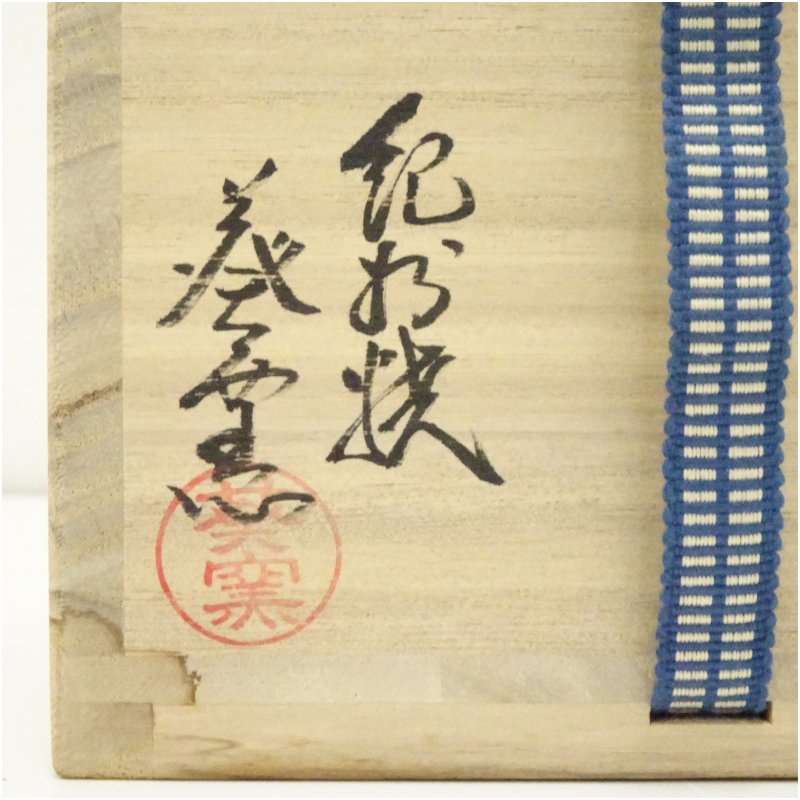 紀州焼
葵窯
葵窯